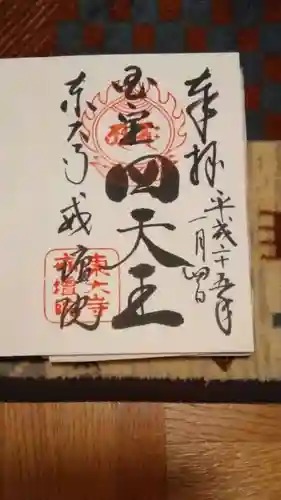 奉拝
平成二十五年
一月四日
国宝四天王
東大寺戒壇院
東大寺
戒壇院